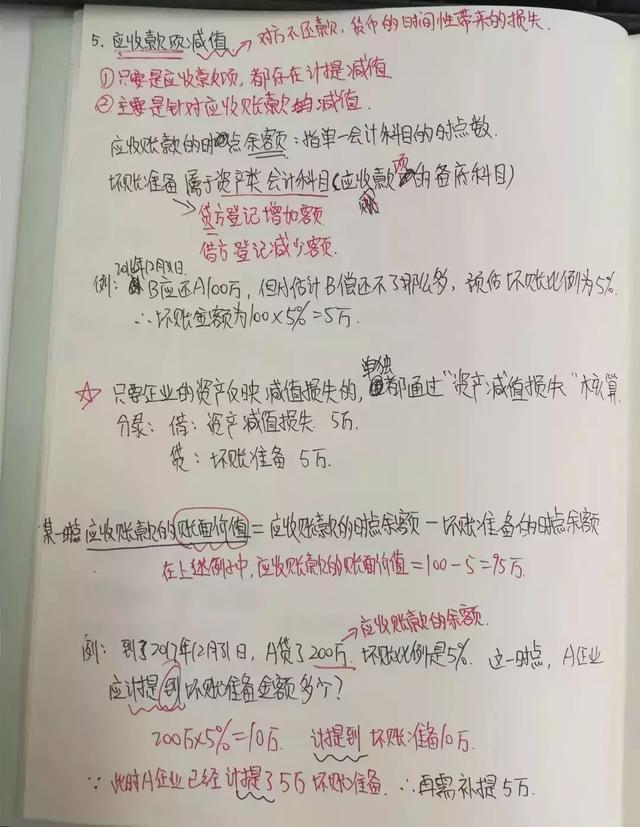 5. 应收款项减值 → 对方不还款，货币的时间性带来的损失.
①只要是应收款项，都存在计提减值
②主要是针对应收账款的减值.
应收账款的时点余额：指单一会计科目的时点数.
坏账准备 属于资产类会计科目(应收款项的备底科目)
贷方登记增加额
借方登记减少额.
2016年12月31日.
例： B应还A100万，但A估计B偿还不了那么多，预估坏账比例为5%.
∴坏账金额为100×5%=5万.
☆ 只要企业的资产反映减值损失的，单独都通过"资产减值损失"核算
分录：借：资产减值损失 5万.
贷：坏账准备 5万.
某一时点应收账款的账面价值=应收账款的时点余额－坏账准备的时点余额
在上述例子中，应收账款的账面价值=100-5=95万.
应收账款的余额.
例：到了2017年12月31日，A贷了200万. 坏账比例是5%. 这一时点，A企业
应计提到坏账准备金额多个？
200万×5%=10万. 计提到坏账准备10万.
∵ 此时A企业已经计提了5万坏账准备. ∴再需补提5万.